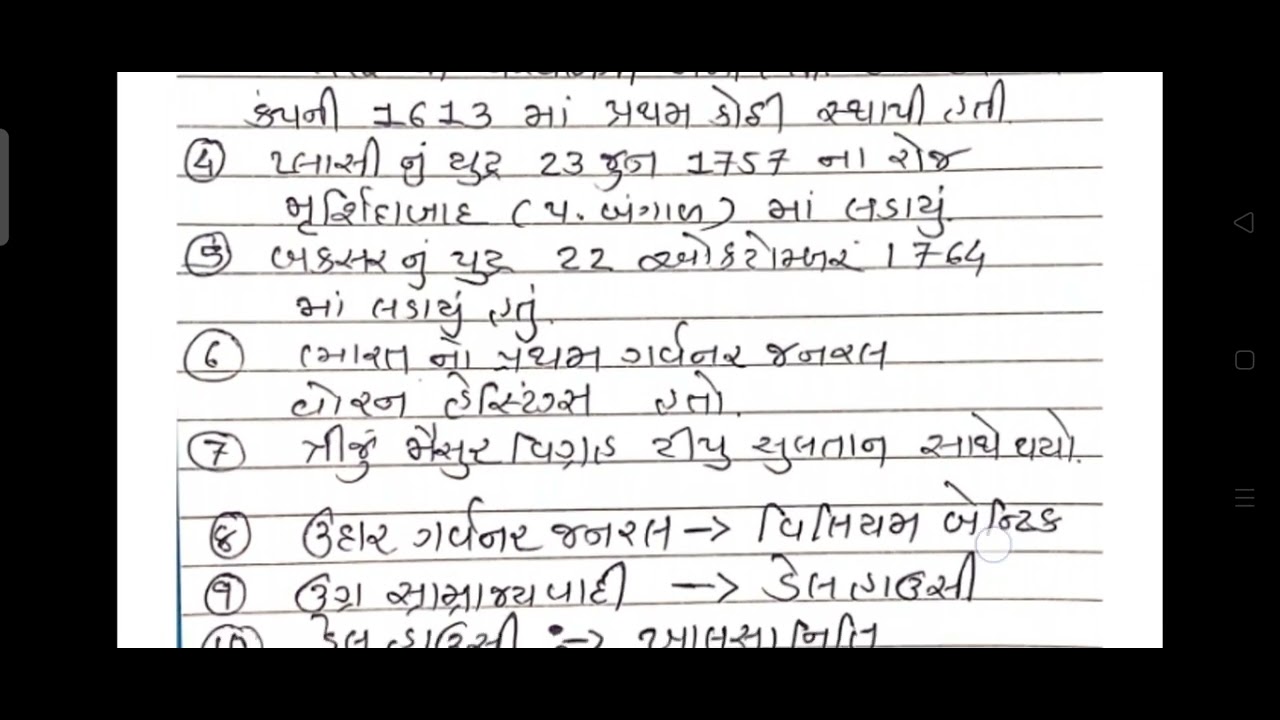 કંપની 1613 માં પ્રથમ કોઠી સ્થાપી હતી
④ પ્લાસી નું યુદ્ધ 23 જુન 1757 ના રોજ
મૂર્શિદાબાદ (પ. બંગાળ) માં લડાયું.
⑤ બકસર નું યુદ્ધ 22 ઓકટોમ્બર 1764
માં લડાયું હતું.
⑥ ભારત નો પ્રથમ ગર્વનર જનરલ
વોરન હેસ્ટિંગ્સ હતો.
⑦ ત્રીજું મૈસુર વિગ્રહ ટીપુ સુલતાન સાથે થયો.
⑧ ઉદાર ગર્વનર જનરલ -> વિલિયમ બેન્ટિક
⑨ ઉગ્ર સામ્રાજ્યવાદી -> ડેલહાઉસી
⑩ ડેલહાઉસી :-> ખાલસાનિતિ